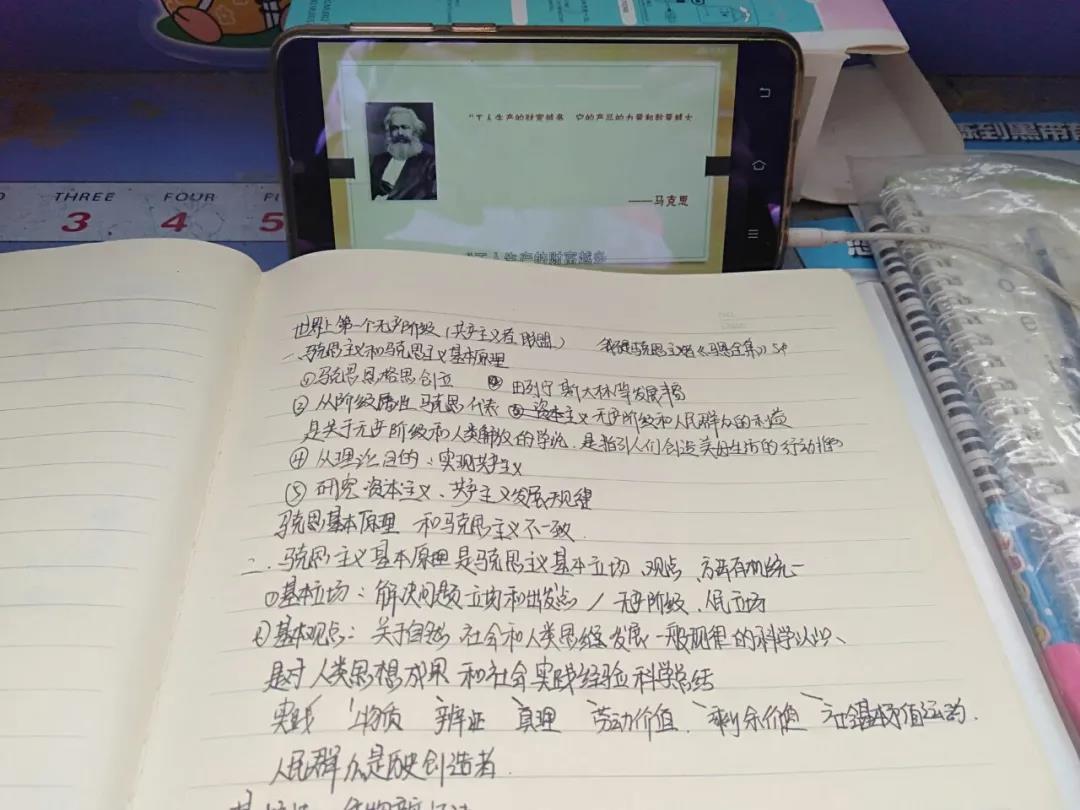 "工人生产的财富越多 它的产品的力量和数量越大
——马克思
"工人生产的财富越多
THREE FOUR
3 4 5
练到黑带
世界上第一个无产阶级(共产主义者同盟)
《马恩全集》
一、马克思主义和马克思主义基本原理
①马克思恩格思创立 由列宁斯大林等发展
② 从阶级属性 马克思代表 资本主义 无产阶级和人民群众的利益
是关于无产阶级和人类解放的学说、是指引人们创造美好生活的行动
④ 从理论目的:实现共产主义
⑤ 研究资本主义、共产主义发展规律
马克思基本原理 和马克思主义不一致
二、马克思主义基本原理是马克思主义基本立场、观点、方法有机统一
①基本立场:解决问题立场和出发点 / 无产阶级、人民立场
②基本观点:关于自然 社会和人类思维发展一般规律的科学认识、
是对人类思想成果和社会实践经验科学总结
实践 物质 辨证 真理 劳动价值、剩余价值
人民群众是历史创造者